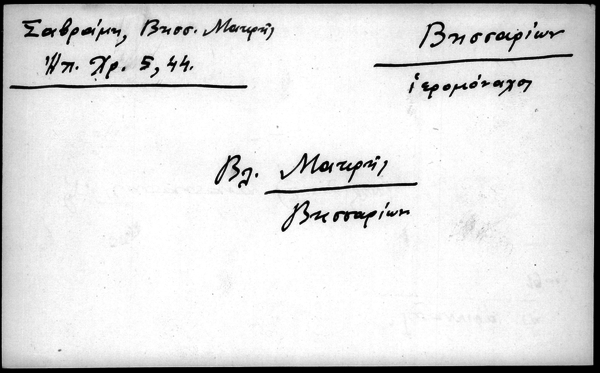 Σαβράμη, Βησσ. Μακρῆς
Ἠπ. Χρ. 5, 44.
Βησσαρίων
ἱερομόναχος
Βλ. Μακρῆς
Βησσαρίων